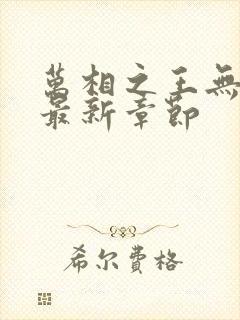 萬相之王無
最新章節
希尔費格